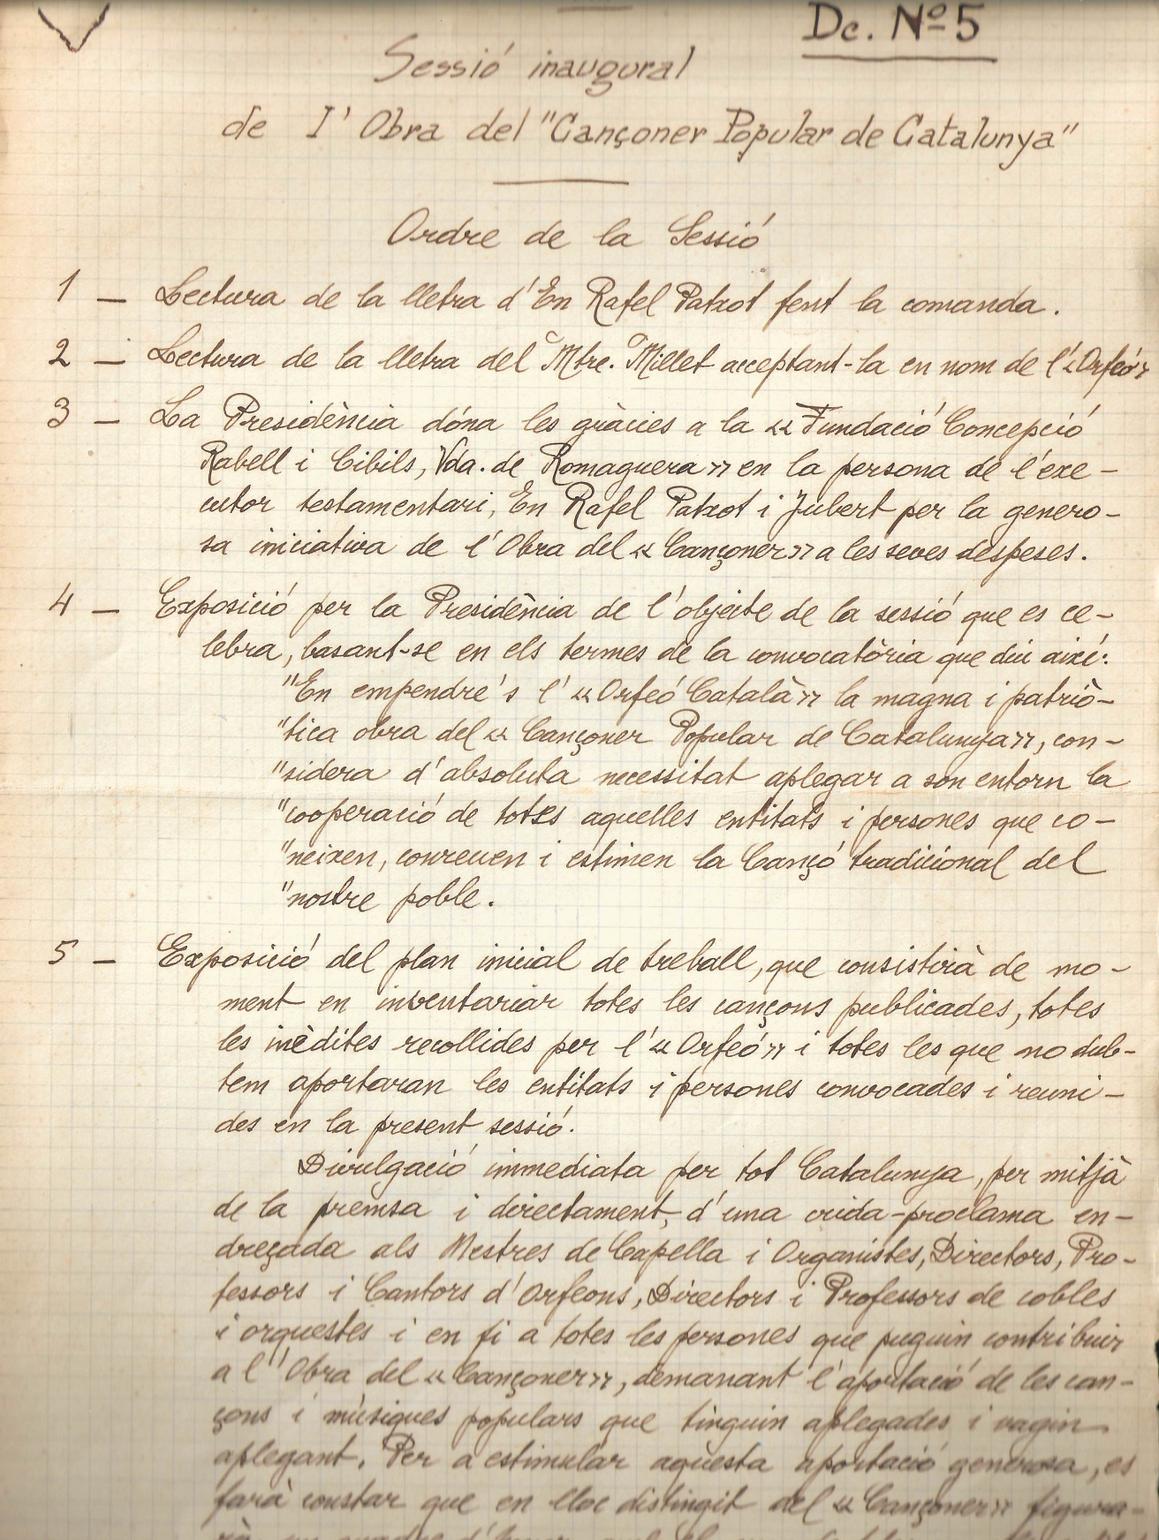 Dc. Nº 5
Sessió inaugural
de l' Obra del "Cançoner Popular de Catalunya"
Ordre de la Sessió
1 — Lectura de la lletra d'En Rafel Patxot fent la comanda.
2 — Lectura de la lletra del Mtre. Millet acceptant-la en nom de l'«Orfeó»
3 — La Presidència dóna les gràcies a la «Fundació Concepció
Rabell i Cibils, Vda. de Romaguera» en la persona de l'exe-
cutor testamentari, En Rafel Patxot i Jubert per la genero-
sa iniciativa de l'Obra del «Cançoner» a les seves despeses.
4 — Exposició per la Presidència de l'objecte de la sessió que es ce-
lebra, basant-se en els termes de la convocatòria que diu així:
"En empendre's l'«Orfeó Català» la magna i patriò-
"tica obra del «Cançoner Popular de Catalunya», con-
"sidera d'absoluta necessitat aplegar a son entorn la
"cooperació de totes aquelles entitats i persones que co-
"neixen, conreuen i estimen la Cançó tradicional del
"nostre poble.
5 — Exposició del plan inicial de treball, que consistirà de mo-
ment en inventariar totes les cançons publicades, totes
les inèdites recollides per l'«Orfeó» i totes les que no dub-
tem aportaran les entitats i persones convocades i reuni-
des en la present sessió.
Divulgació immediata per tot Catalunya, per mitjà
de la premsa i directament, d'una crida-proclama en-
dreçada als Mestres de Capella i Organistes, Directors, Pro-
fessors i Cantors d'Orfeons, Directors i Professors de cobles
i orquestes i en fi a totes les persones que puguin contribuir
a l'Obra del «Cançoner», demanant l'aportació de les can-
çons i músiques populars que tinguin aplegades i vagin
aplegant. Per a estimular aquesta aportació generosa, es
farà constar que en lloc distingit del «Cançoner» figura-